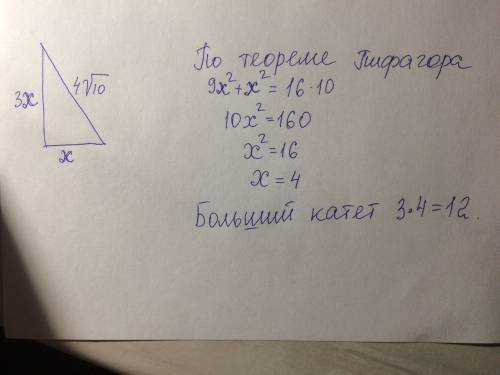 3x
4√10
x
По теореме Пифагора
9x²+x²=16·10
10x²=160
x²=16
x=4
Больший катет 3·4=12.